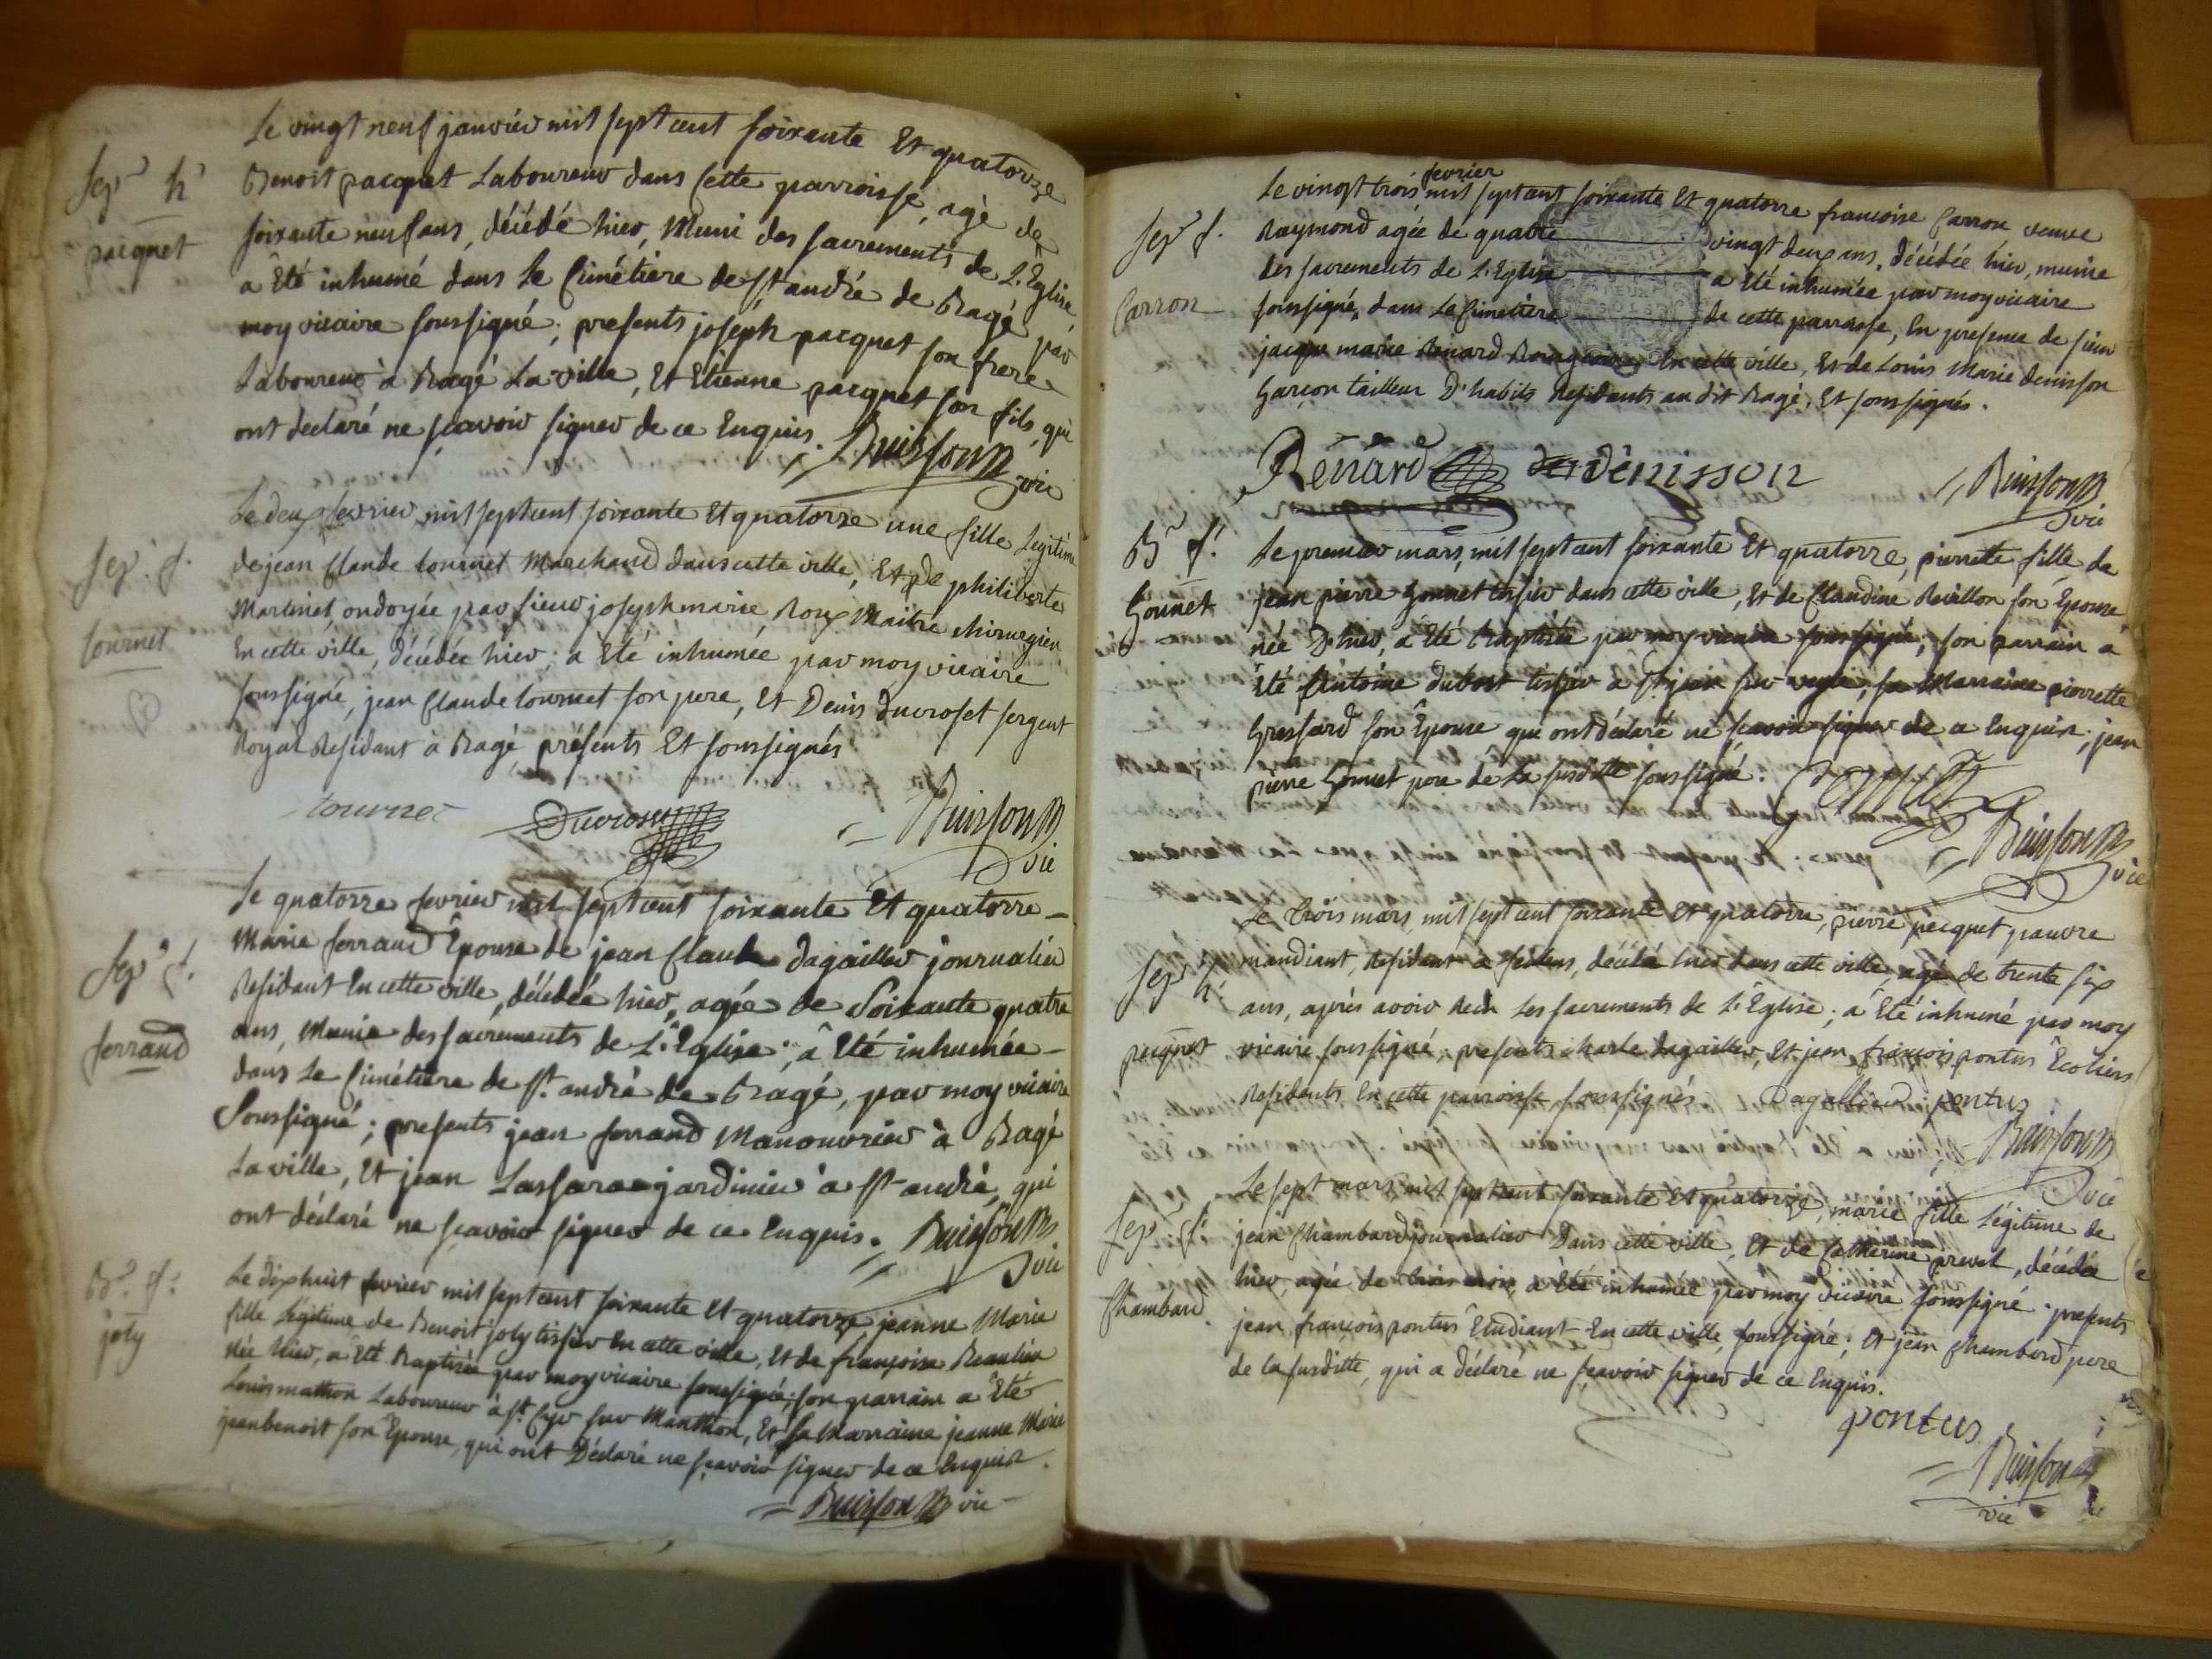 Le vingt neuf janvier mil sept cent soixante Et quatorze
Sepre h'
Benoit pacquet Laboureur dans cette parroisse, agé de
pacquet
soixante neuf ans, décédé hier, Muni des sacrements de L'Eglise,
a Eté inhumé dans Le Cimétière de St andré de Bagé par
moy vicaire soussigné; presents joseph pacquet son frere
Laboureur à Bagé La ville, Et Etienne pacquet son fils, qui
ont declaré ne sçavoir signer de ce Enquis. Buisson
vic
Le deux fevrier mil sept cent soixante Et quatorze une fille Legitime
Sepre f.
de jean Claude tournet Marchand dans cette ville, Et de philiberte
tournet
Martinet, ondoyée par sieur joseph marie Roux Maitre chirurgien
En cette ville, décédée hier; a Eté inhumée par moy vicaire
soussigné, jean Claude tournet son pere, Et Denis ducroset sergent
Royal Residant à Bagé, présents Et soussignés
tournet Ducroset Buisson
vic
Le quatorze fevrier mil sept cent soixante Et quatorze
Sepre f.
Marie ferrand Epouse de jean Claude dagallier journalier
ferrand
Residant En cette ville, décédée hier, agée de Soixante quatre
ans, Munie des sacrements de L'Eglise; a Eté inhumée
dans Le Cimétière de St. andré de Bagé, par moy vicaire
Soussigné; presents jean ferrand Manouvrier à Bagé
La ville, Et jean jardinier à St andré, qui
ont déclaré ne sçavoir signer de ce Enquis. Buisson
vic
Bre f.
Le dix huit fevrier mil sept cent soixante Et quatorze jeanne Marie
joly
fille Légitime de Benoit joly tissier En cette ville, Et de françoise Beaulieu
née hier, a Eté Baptisée par moy vicaire soussigné; son parrain a Eté
Louis mathon Laboureur à St. Cyr sur Manthon, Et sa Marraine jeanne Marie
jeanbenoit son Epouse, qui ont Déclaré ne sçavoir signer de ce Enquis.
Buisson vic
fevrier
Le vingt trois mil sept cent soixante Et quatorze francoise Carron veuve
Sepre f.
Raymond agée de quatre vingt deux ans, décédée hier, munie
Carron
des sacrements de L'Eglise a Eté inhumée par moy vicaire
soussigné, dans Le Cimetière de cette parroisse, En presence de sieur
jacque marie Renard Bourgeois En cette ville, Et de Louis Marie denisson
Garçon tailleur D'habits Residents au dit Bagé, Et soussignés.
Renard denisson Buisson
vic
Bre f.
Le premier mars, mil sept cent soixante Et quatorze, pierrette fille de
Gonnet
jean pierre Gonnet tissier dans cette ville, Et de Claudine Revillon son Epouse,
née D'hier, a Eté Baptisée par moy vicaire soussigné; son parrain a
Eté Antoine dubost tissier à St jean sur veyle, sa Marraine pierrette
Gressard son Epouse qui ont déclaré ne sçavoir signer de ce Enquis; jean
pierre Gonnet pere de La susditte soussigné. Gonnet
Buisson
vic
Le trois mars, mil sept cent soixante Et quatorze, pierre pecquet pauvre
Sepre h'
mandiant, Residant à feillens, décédé hier dans cette ville, agé de trente six
ans, après avoir Recu Les sacrements de L'Eglise; a Eté inhumé par moy
pecquet
vicaire soussigné; presents charle dagallier, Et jean françois pontus Ecoliers
Residents En cette parroisse, soussignés. Dagallier pontus
Buisson
vic
Le sept mars, mil sept cent soixante Et quatorze, marie fille Légitime de
Sepre f.
jean Chambard journalier Dans cette ville, Et de Catherine prevet, décédée
hier, agée de trois mois, a Eté inhumée par moy vicaire soussigné. presents
Chambard
jean françois pontus Etudiant En cette ville, soussigné; Et jean Chambard pere
de la susditte, qui a déclaré ne sçavoir signer de ce Enquis.
pontus
Buisson
vic